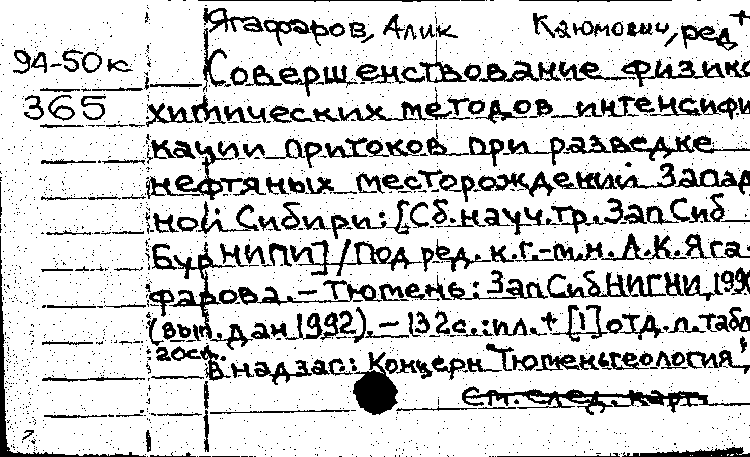 Ягафаров, Алик Каюмович, ред
94-50к
365
Совершенствование физико
химических методов интенсифи
кации притоков при разведке
нефтяных месторождений Запад
ной Сибири: [Сб. науч. тр. ЗапСиб
БурНИПИ] / Под ред. к.г.-м.н. А.К. Яга-
фарова. – Тюмень: ЗапСибНИГНИ, 1990
(вып. дан 1992). – 132с.: ил. + [1] отд. л. табл
20см.
В надзаг: Концерн "Тюменьгеология",
См. след. карт.